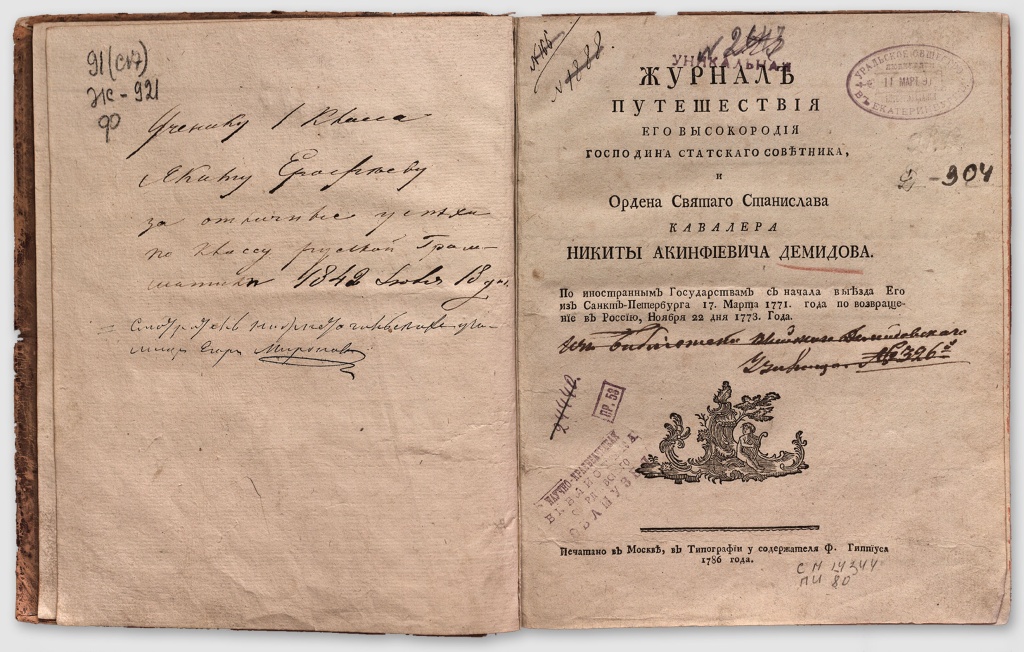 91(с17)
Ж-921
Ученику 1 класса
Якиму Ерофееву
за отличные успехи
по классу русской Грам-
матики 1842 Июля 18 дня.
Егоръ Мироновъ
№ 2643
УНИКАЛЬНАЯ
ЖУРНАЛЪ
ПУТЕШЕСТВІЯ
ЕГО ВЫСОКОРОДІЯ
ГОСПОДИНА СТАТСКАГО СОВѢТНИКА,
и
Ордена Святаго Станислава
КАВАЛЕРА
НИКИТЫ АКИНФІЕВИЧА ДЕМИДОВА.
По иностраннымъ Государствамъ съ начала выѣзда Его
изъ Санктъ-Петербурга 17. Марта 1771. года по возвраще-
ніе въ Россію, Ноября 22 дня 1773. Года.
Изъ библіотеки Демидовскаго
Училища №326й
УРАЛЬСКОЕ ОБЩЕСТВО
11 МАРТ
ВЪ ЕКАТЕРИНБУРГѢ
-904
ПР. 53
НАУЧНО-КРАЕВЕДЧЕСКАЯ
ОБЛМУЗЕЯ
Печатано въ Москвѣ, въ Типографіи у содержателя Ф. Гиппіуса
1786 года.
СП 14344
ПИ 80